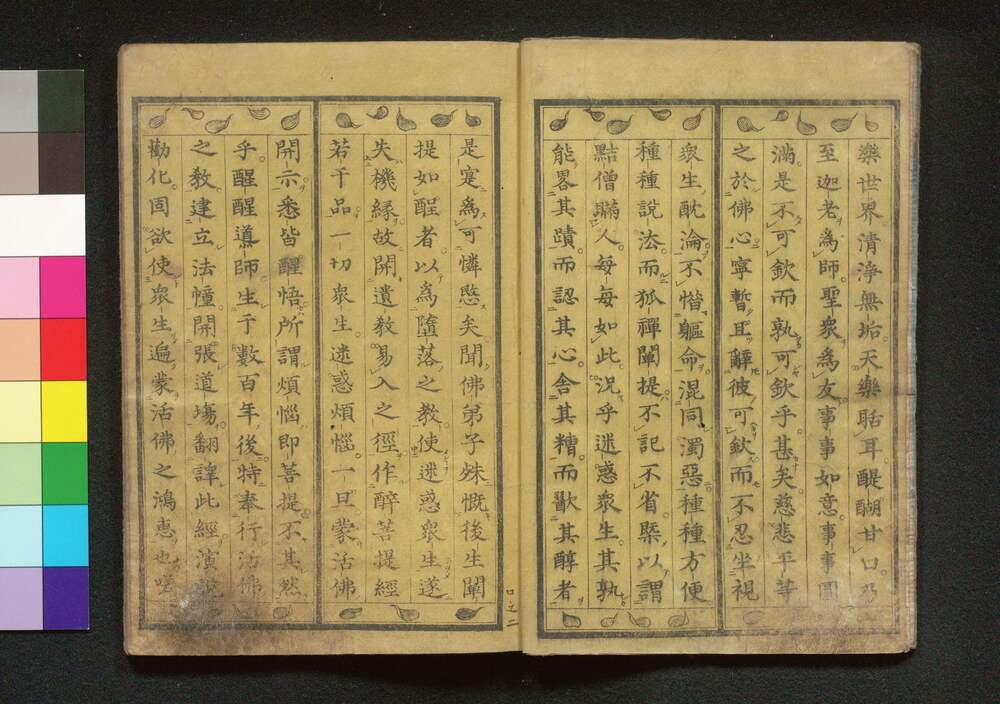 樂世界清淨無垢天樂聒耳醍醐甘口乃
至迦老為師聖衆為友事事如意事事圓
滿是不可欽而孰可欽乎甚矣慈悲平等
之於佛心寧暫且辭彼可欽而不忍坐視
衆生酖淪不惜軀命混同濁惡種種方便
種種說法而狐禪闡提不記不省槩以謂
黠僧瞞人每每如此况乎迷惑衆生其孰
能畧其蹟而認其心舍其糟而歠其醇者
是寔為可憐愍矣聞佛弟子殊慨後生闡
提如醒者以為墮落之教使迷惑衆生遂
失機緣故開遺教易入之徑作醉菩提經
若干品一切衆生迷惑煩惱一旦蒙活佛
開示悉皆醒悟所謂煩惱即菩提不其然
乎醒醒導師生于數百年後特奉行活佛
之教建立法幢開張道場翻譯此經演說
勸化固欲使衆生遍蒙活佛之鴻惠也嗟
口之二